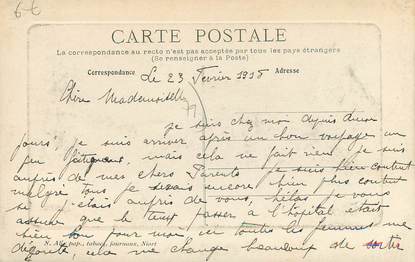 6€
CARTE POSTALE
La correspondance au recto n'est pas acceptée par tous les pays étrangers
(Se renseigner à la Poste)
Correspondance Adresse
Le 23 Fevrier 1915
Chère Mademoiselle
je suis chez moi depuis deux
jours je suis arriver après un bon voyage un
peu fatiguant, mais cela ne fait rien je suis
auprès de mes chers Parents je suis bien content
malgré tous je serais encore bien plus content
si j'étais auprès de vous, hélas je vous
assure que le temps passer a l'hopital était
bien bon pour moi ici toutes les femmes me
dégoute, cela me change beaucoup de sortir
N. A., pap., tabacs, journaux, Niort